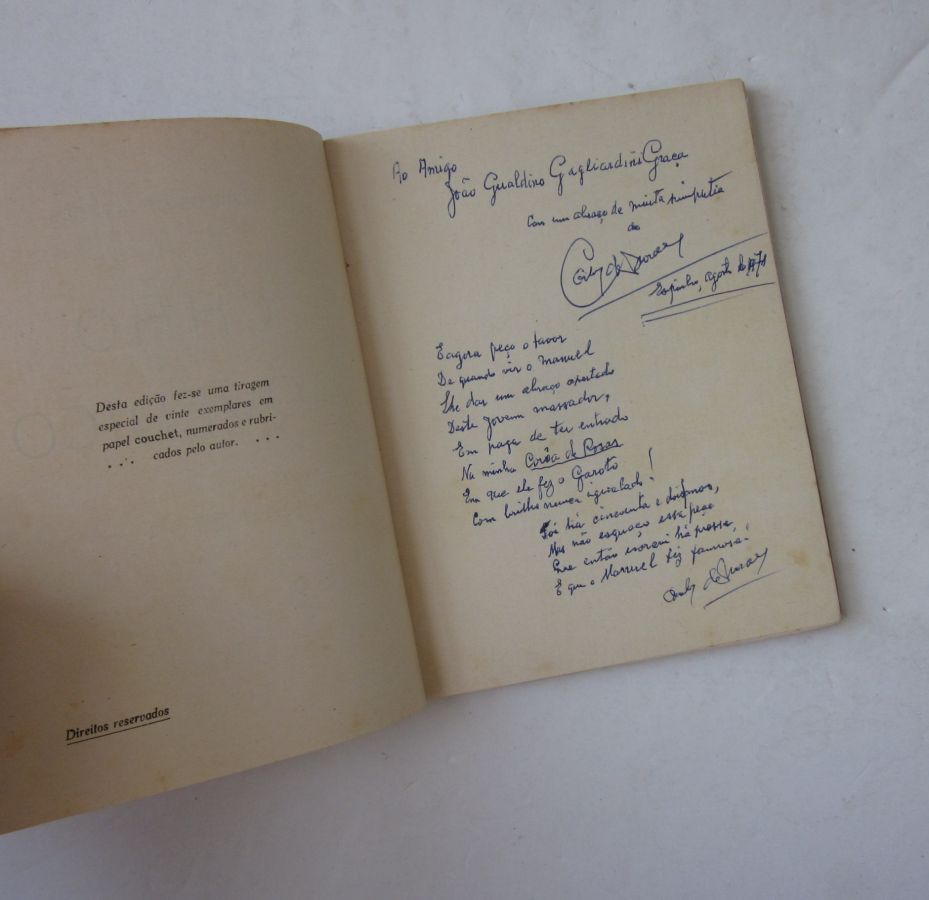 Desta edição fez-se uma tiragem
especial de vinte exemplares em
papel couchet, numerados e rubri-
. . . cados pelo autor. . . .
Direitos reservados
Ao Amigo
João Gualdino Gagliardini Graça
Com um abraço de muita simpatia
do
Carlos de Moraes
Espinho, agosto de 1971
E agora peço o favor
De quando vir o Manuel
Lhe dar um abraço apertado
Deste jovem massador,
Em paga de ter entrado
Na minha Corôa de Rosas
Em que ele fez o Garoto
Com brilho nunca igualado!
Foi há cincoenta e
Mas não esqueço essa peça
Que então escrevi há pressa
E que o Manuel fez famosa!
Carlos de Moraes